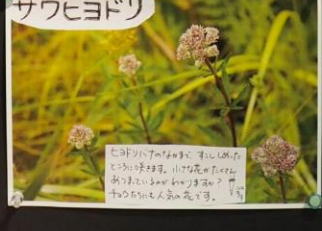 サワヒヨドリ
ヒヨドリバナのなかまで、すこし しめった
ところに咲きます。小さな花がたくさん
あつまっているのが わかりますか？
チョウたちにも人気の花です。